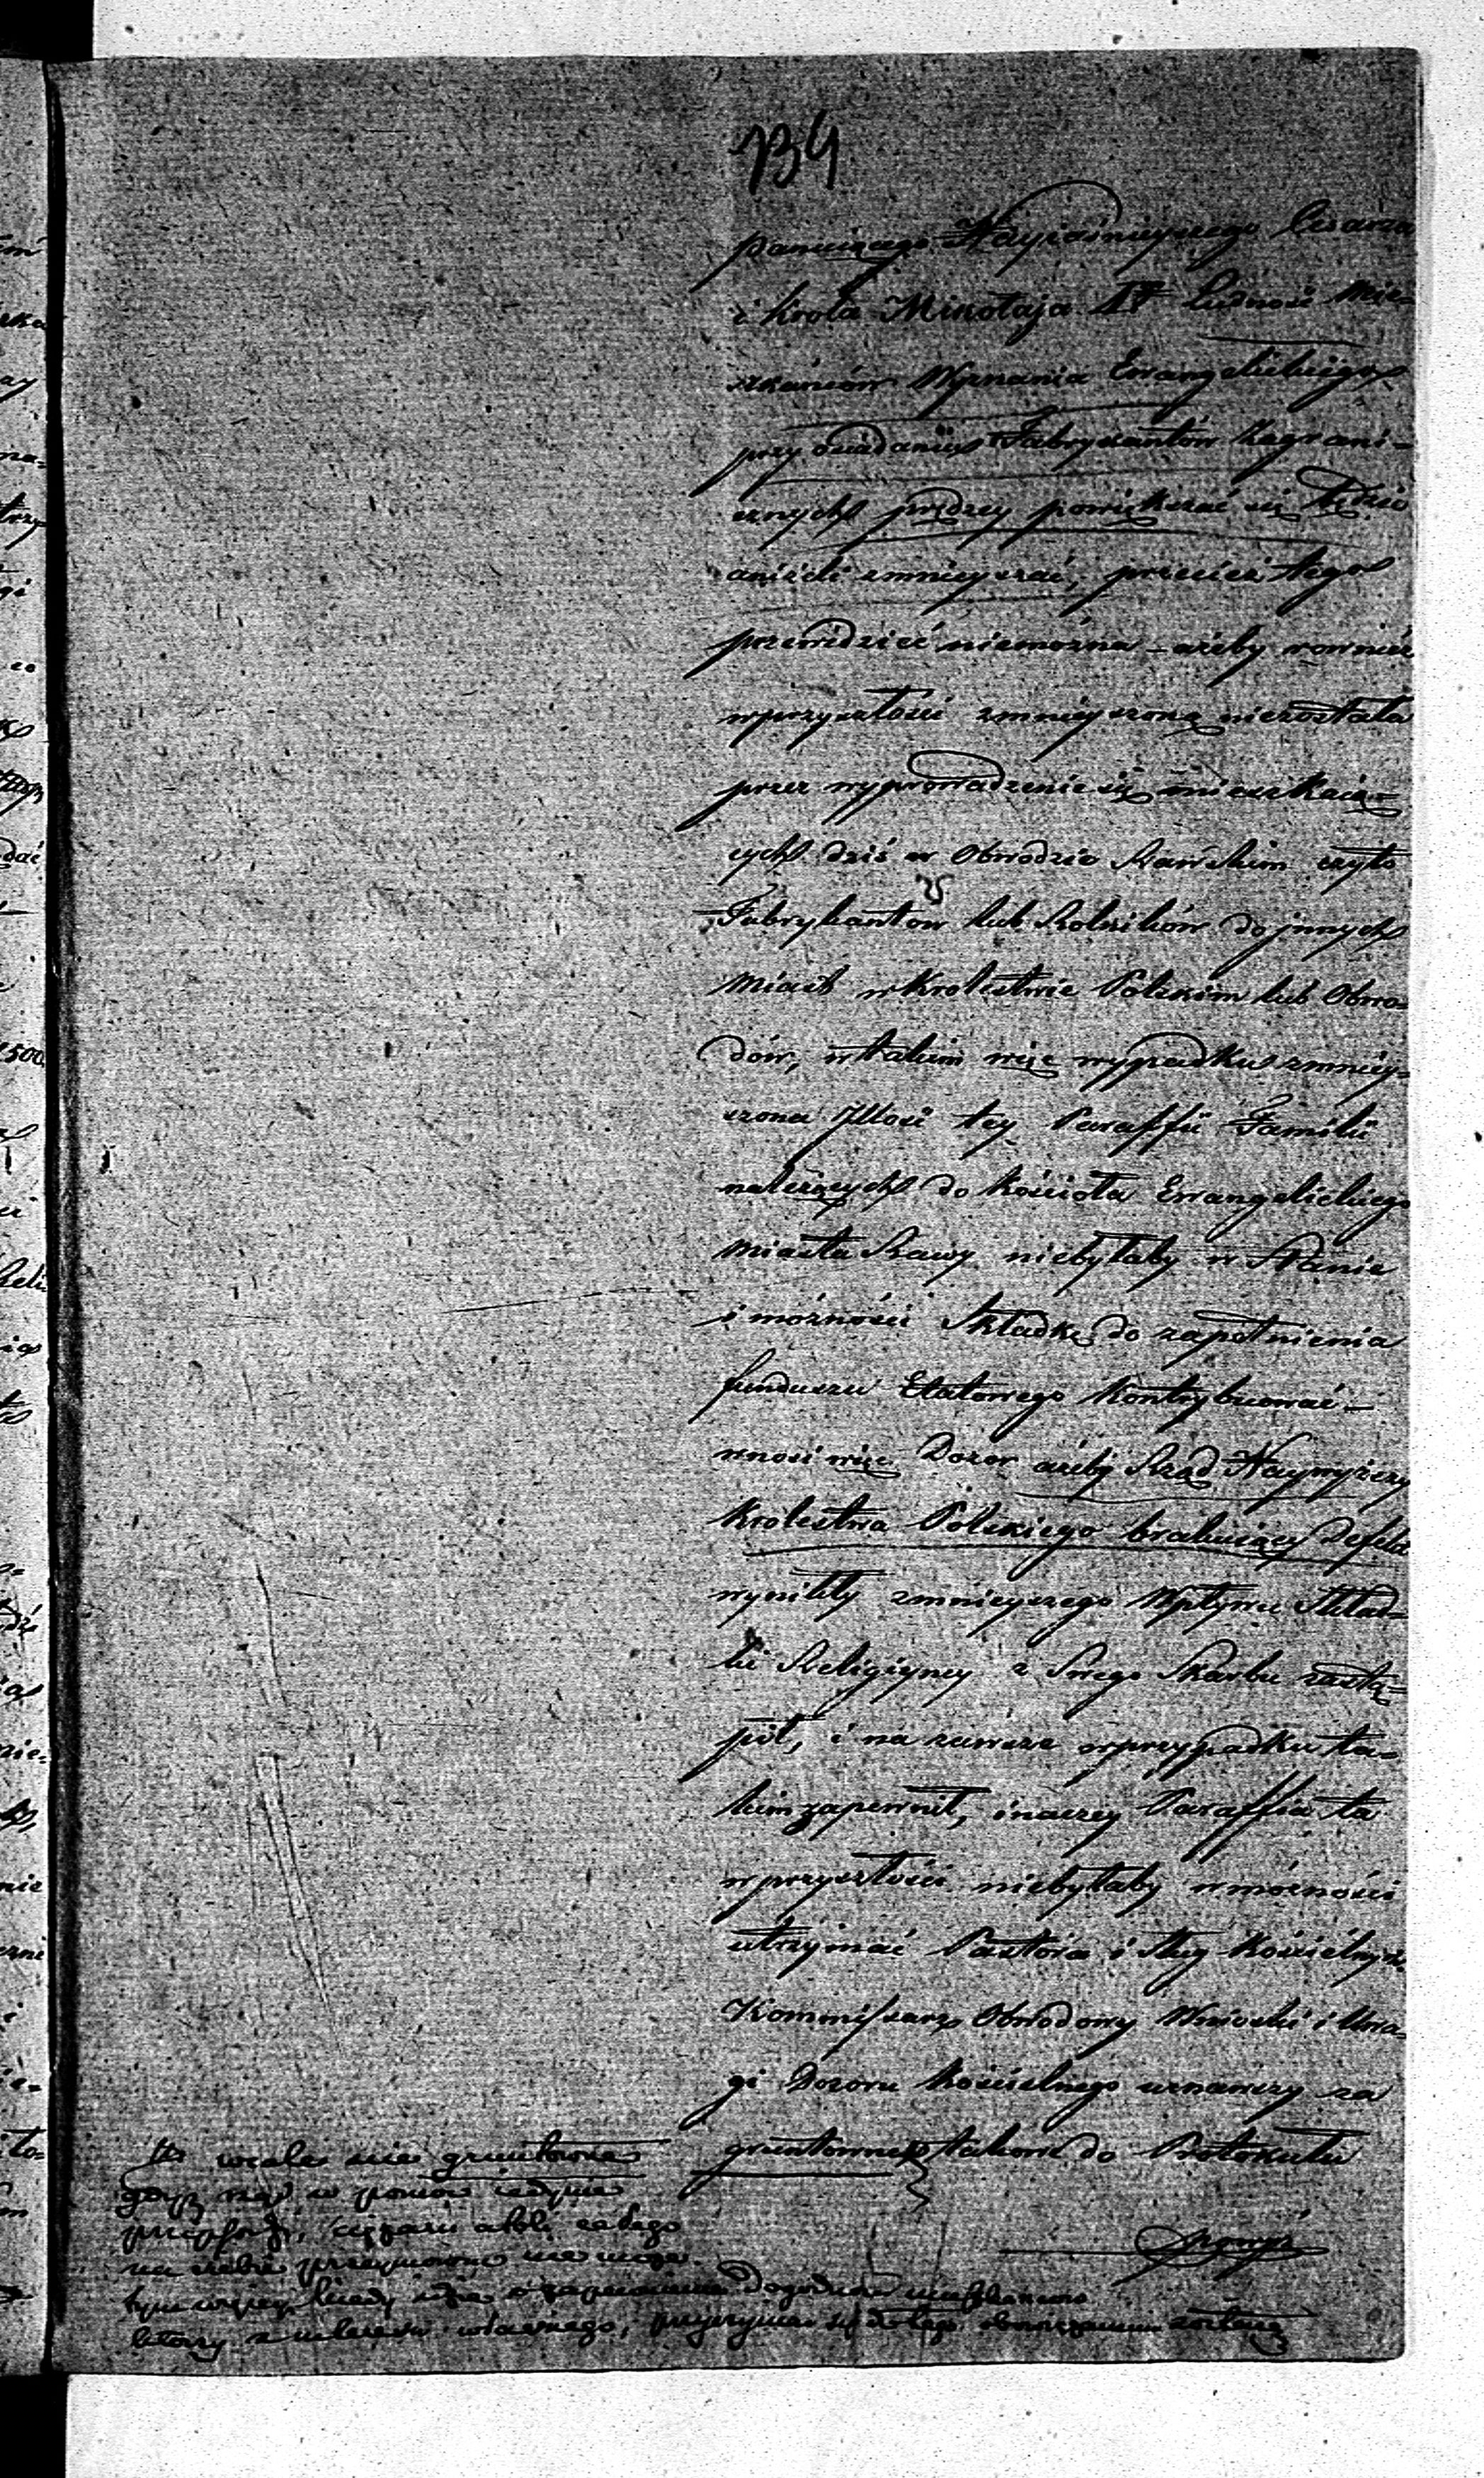 134
panuiącego Nayiaśnieyszego Cesarza
i Krola Mikołaja I° Ludność Mie-
szkańców Wyznania Ewangelickiego
przy osiadaniu Fabrykantów Zagrani-
cznych prędzey powiększać się będzie
aniżeli zmnieyszać, przecież tego
przewidzieć niemożna – ażeby rownież
wprzyszłości zmnieyszoną niezostała
przez wyprowadzenie się mieszkaią-
cych dziś w Obwodzie Rawskim czyto
Fabrykantow lub Rolników do jnnych
Miast w Krolestwie Polskim lub Obwo-
dów, w takim więc wypadku zmniey-
szona Jllość tey Paraffii Familii
należących do Kościoła Ewangelickiego
Miasta Rawy niebyłaby w Stanie
i możności Składkę do zapełnienia
funduszu Etatowego Kontrybuować –
wnosi więc Dozor ażeby Rząd Naywyższy
Krolestwa Polskiego brakuiący Defekt
wynikły zmnieyszego Wpływu Skład-
ki Religiyney z Swego Skarbu zastą-
pił, i na zawsze w przypadku ta-
kim zapewnił, inaczey Paraffia ta
w przyszłości niebyłaby w możności
utrzymać Pastora i Sług Kościelnych
Kommissarz Obwodowy Wnioski i Uwa-
gi Dozoru Kościelnego uznawszy za
gruntowne takowe do Protokułu
wcale nie gruntowne
gdyż rząd w pomoc iedynie
ciężaru całego
na siebie przyymować nie może
tym więcey kiedy idzie o zapewnienie Dogodności mieszkańcow
którzy z interesu własnego, do tego obowiązanemi zostaią